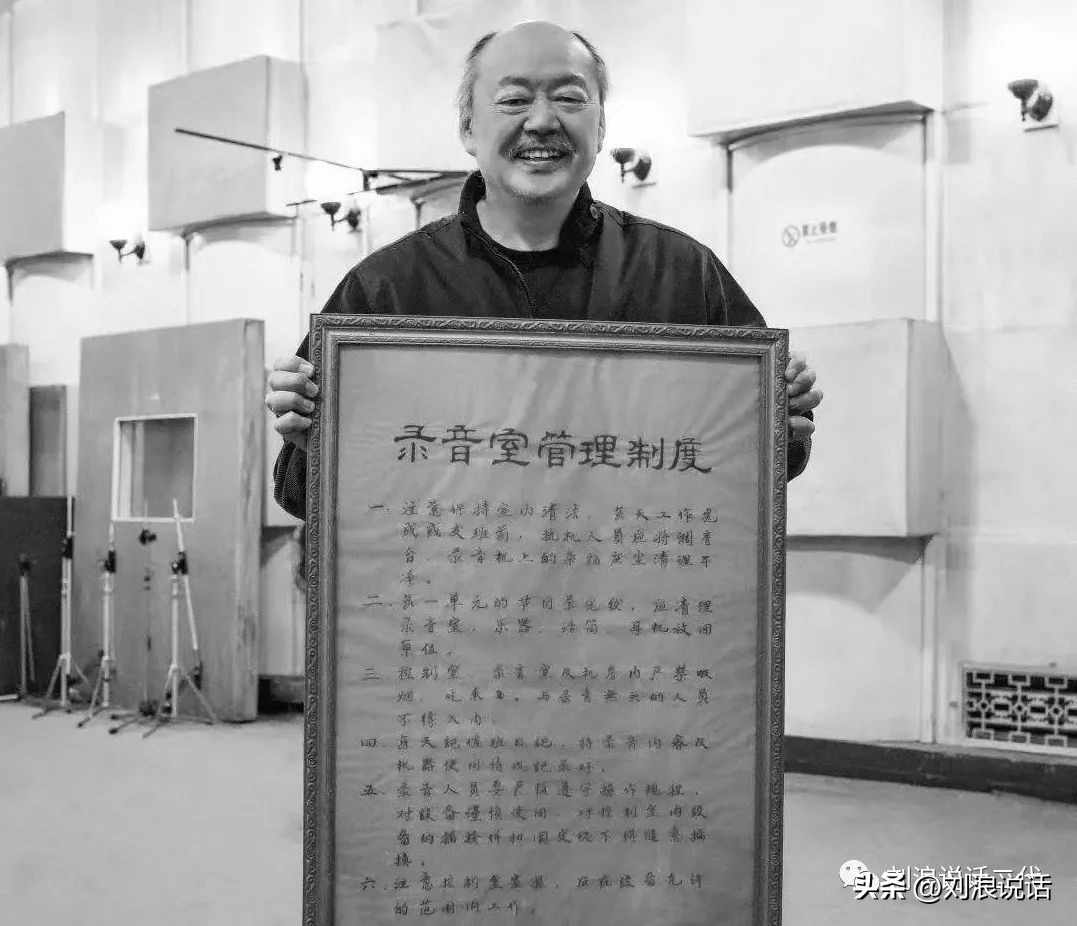 禁止吸烟
录音室管理制度
一、注意保持室内清洁，每天工作完
成或交班前，执机人员应将调音
台、录音机上的杂物灰尘清理干
净。
二、每一单元的节目录完后，应清理
录音室，乐器、话筒、耳机放回
原位。
三、控制室、录音室及机房内严禁吸
烟、吃东西。与录音无关的人员
不得入内。
四、每天記值班日記，将录音内容及
机器使用情况記录好。
五、录音人员要严格遵守操作规程，
对設备谨慎使用，对控制室内設
备的插接件和固定线不得随意插
换。
六、注意控制室温湿，应在設备允许
的范围内工作。
刘浪说话二代
头条 @刘浪说话